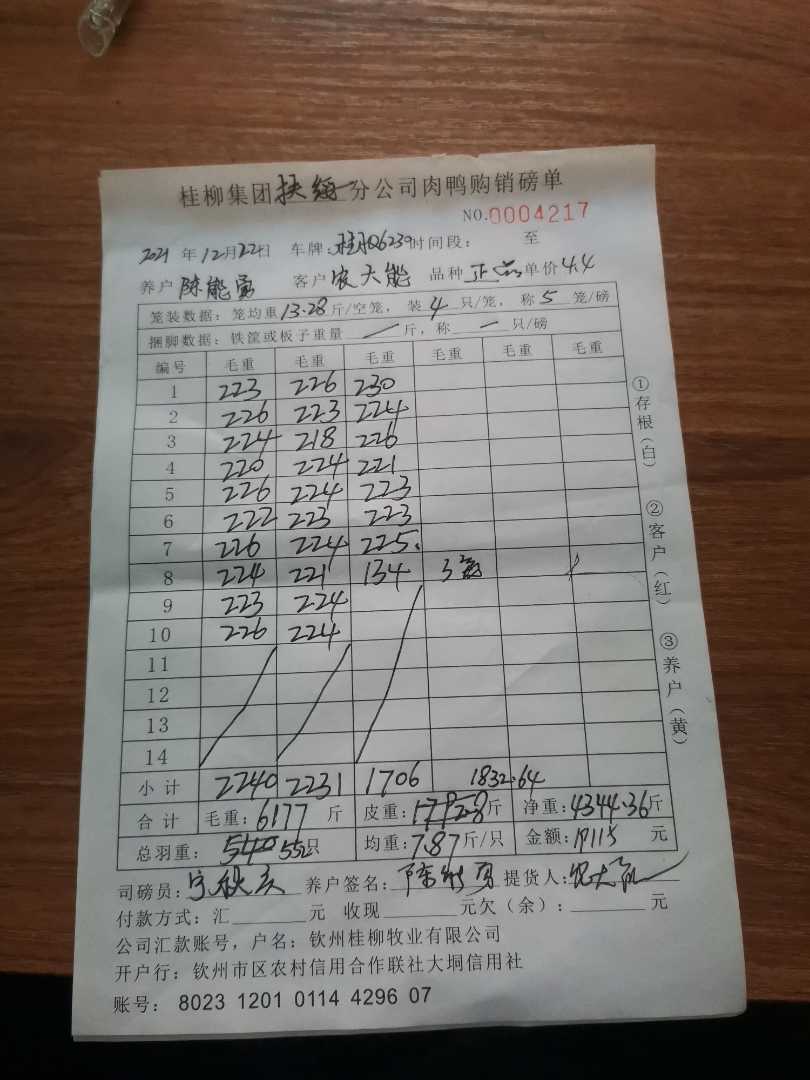 桂柳集团扶绥分公司肉鸭购销磅单
NO.0004217
2021 年 12月22日 车牌: 桂AQ6239 时间段: 至
养户 陈能勇 客户 农大能 品种 正品 单价 4.4
笼装数据: 笼均重 13.28 斤/空笼, 装 4 只/笼, 称 5 笼/磅
捆脚数据: 铁筐或板子重量 / 斤, 称 一 只/磅
编号 毛重 毛重 毛重 毛重 毛重 毛重
1 223 226 230
2 226 223 224
3 224 218 226
4 220 224 221
5 226 224 223
6 222 223 223
7 226 224 225.
8 224 221 134 3
9 223 224
10 226 224
11
12
13
14
小计 2240 2231 1706 1832.64
合计 毛重: 6177 斤 皮重: 斤 净重: 4344.36 斤
总羽重: 540 552 只 均重: 7.87 斤/只 金额: 19115 元
司磅员: 养户签名: 陈能勇 提货人: 农大能
付款方式: 汇 元 收现 元欠(余): 元
公司汇款账号, 户名: 钦州桂柳牧业有限公司
开户行: 钦州市区农村信用合作联社大垌信用社
账号: 8023 1201 0114 4296 07
①存根(白)
②客户(红)
③养户(黄)